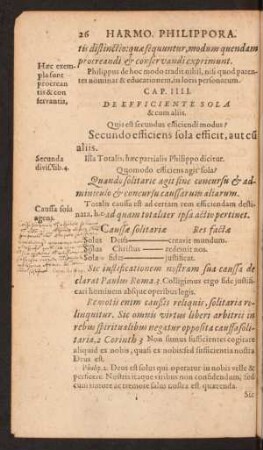 26 HARMO. PHILIPPORA.
tis distinctio: quæ sequuntur, modum quendam
procreandi & conservandi exprimunt.
Hæc exem-
pla sunt
procrean
tis & con
servantis,
Philippus de hoc modo tradit nihil, nisi quod paren-
tes nominat & educationem, in locis personarum.
CAP. IIII.
DE EFFICIENTE SOLA
& cum aliis.
Quis est secundus efficiendi modus?
Secundo efficiens sola efficit, aut cũ
aliis.
Secunda
divis. lib. 4.
Illa Totalis, hæc partialis Philippo dicitur.
Quomodo efficiens agit sola?
Quando solitarie agit sine concursu & ad-
miniculo & concursu caussarum aliarum.
Caussa sola
agens.
Totalis caussa est ad certam rem efficiendam desti-
nata, h.e. ad quam totaliter ipsa actio pertinet.
Caussæ solitariæ Res factæ
Solus Deus creavit mundum.
Solus Christus redemit nos.
Sola fides justificat.
Sic justificationem nostram sua caussa de
clarat Paulus Rom. 3. Colligimus ergo fide justi-
ficari hominem absque operibus legis.
Remotis enim causis reliquis, solitaria re-
linquitur. Sic omnis virtus liberi arbitrii in
rebus spiritualibus negatur opposita caussa soli-
taria. 2 Corinth. 3 Non sumus sufficientes cogitare
aliquid ex nobis, quasi ex nobis, sed sufficientia nostra
Deus est.
Philip. 2. Deus est solus qui operatur in nobis velle &
perficere. Nostris itaque viribus non confidendum, sed
cum timore ac tremore salus nostra est quærenda.
Sic